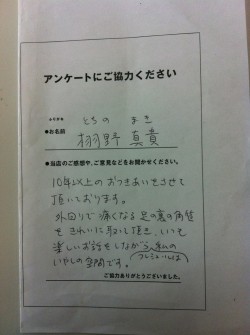 アンケートにご協力ください
ふりがな
とちの まき
●お名前
栩野 真貴
●当店のご感想や、ご意見などをお聞かせください。
10年以上のおつきあいをさせて
頂いております。
外回りで痛くなる足の裏の角質
をきれいに取って頂き、いつも
楽しいお話をしながら、私の
プレミアムな
いやしの空間です。
ご協力ありがとうございました。